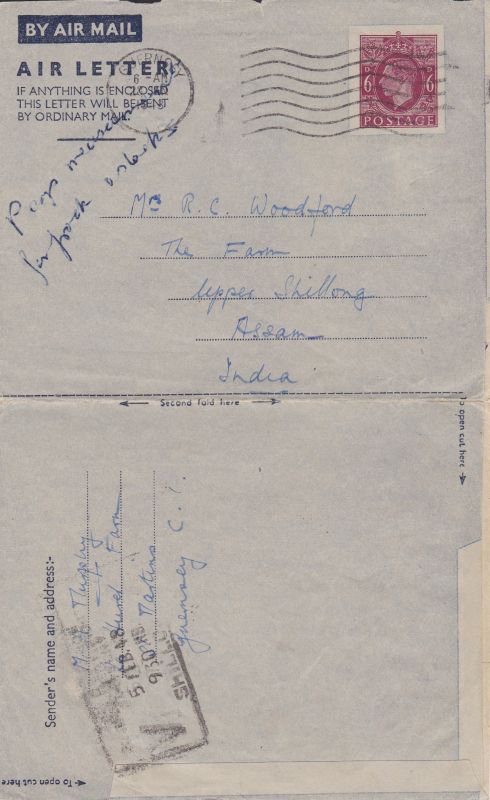 BY AIR MAIL
AIR LETTER
IF ANYTHING IS ENCLOSED
THIS LETTER WILL BE SENT
BY ORDINARY MAIL
6
6
POSTAGE
Mrs R. C. Woodford
The Farm
Upper Shillong
Assam
India
Second fold here
To open cut here
Sender's name and address:-
Murphy
Farm
St Martins
Guernsey C. I.
5 FEB 48
9 30
To open cut here